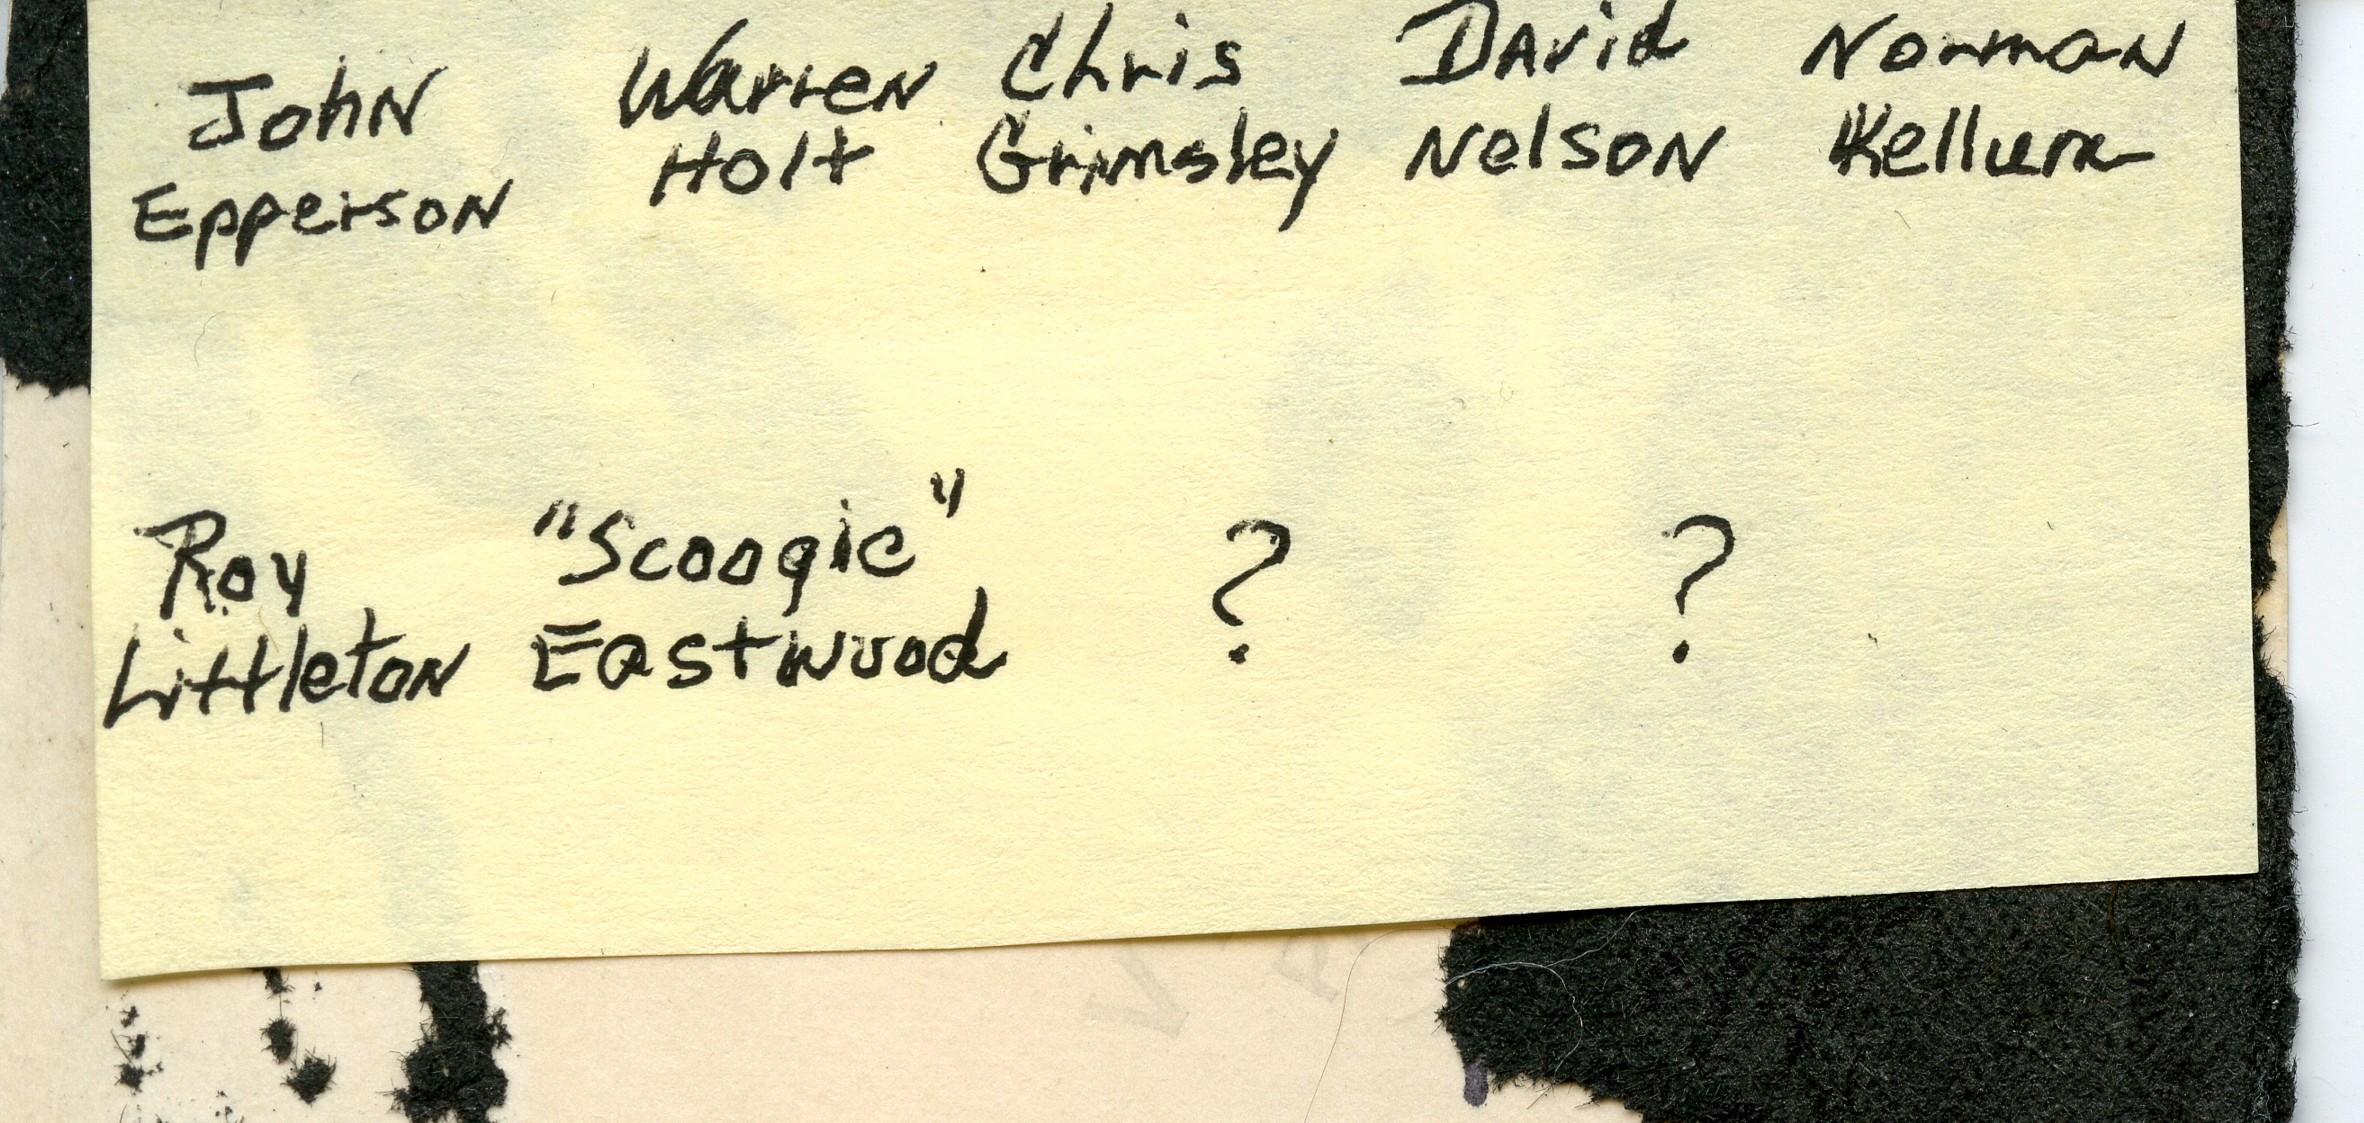 John Warren Chris David Norman
Epperson Holt Grimsley Nelson Kellum
Roy "Scoogie" ? ?
Littleton Eastwood